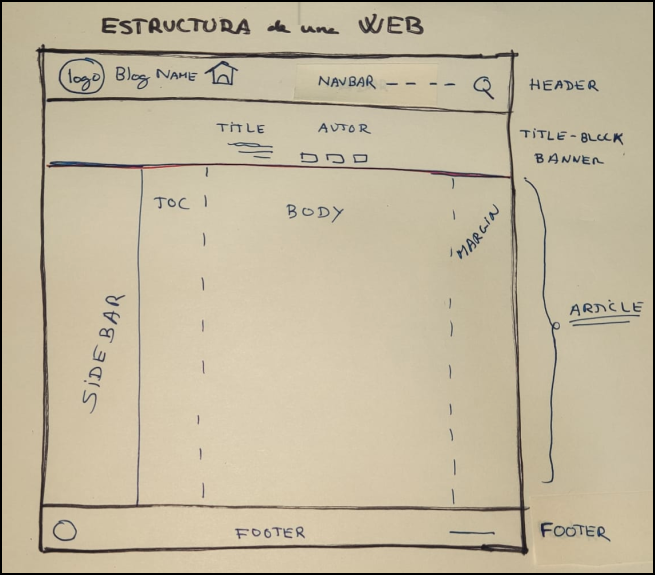 ESTRUCTURA de una WEB
logo Blog NAME NAVBAR
HEADER
TITLE AUTOR
TITLE-BLOCK
BANNER
TOC BODY MARGIN
SIDEBAR
ARTICLE
FOOTER
FOOTER